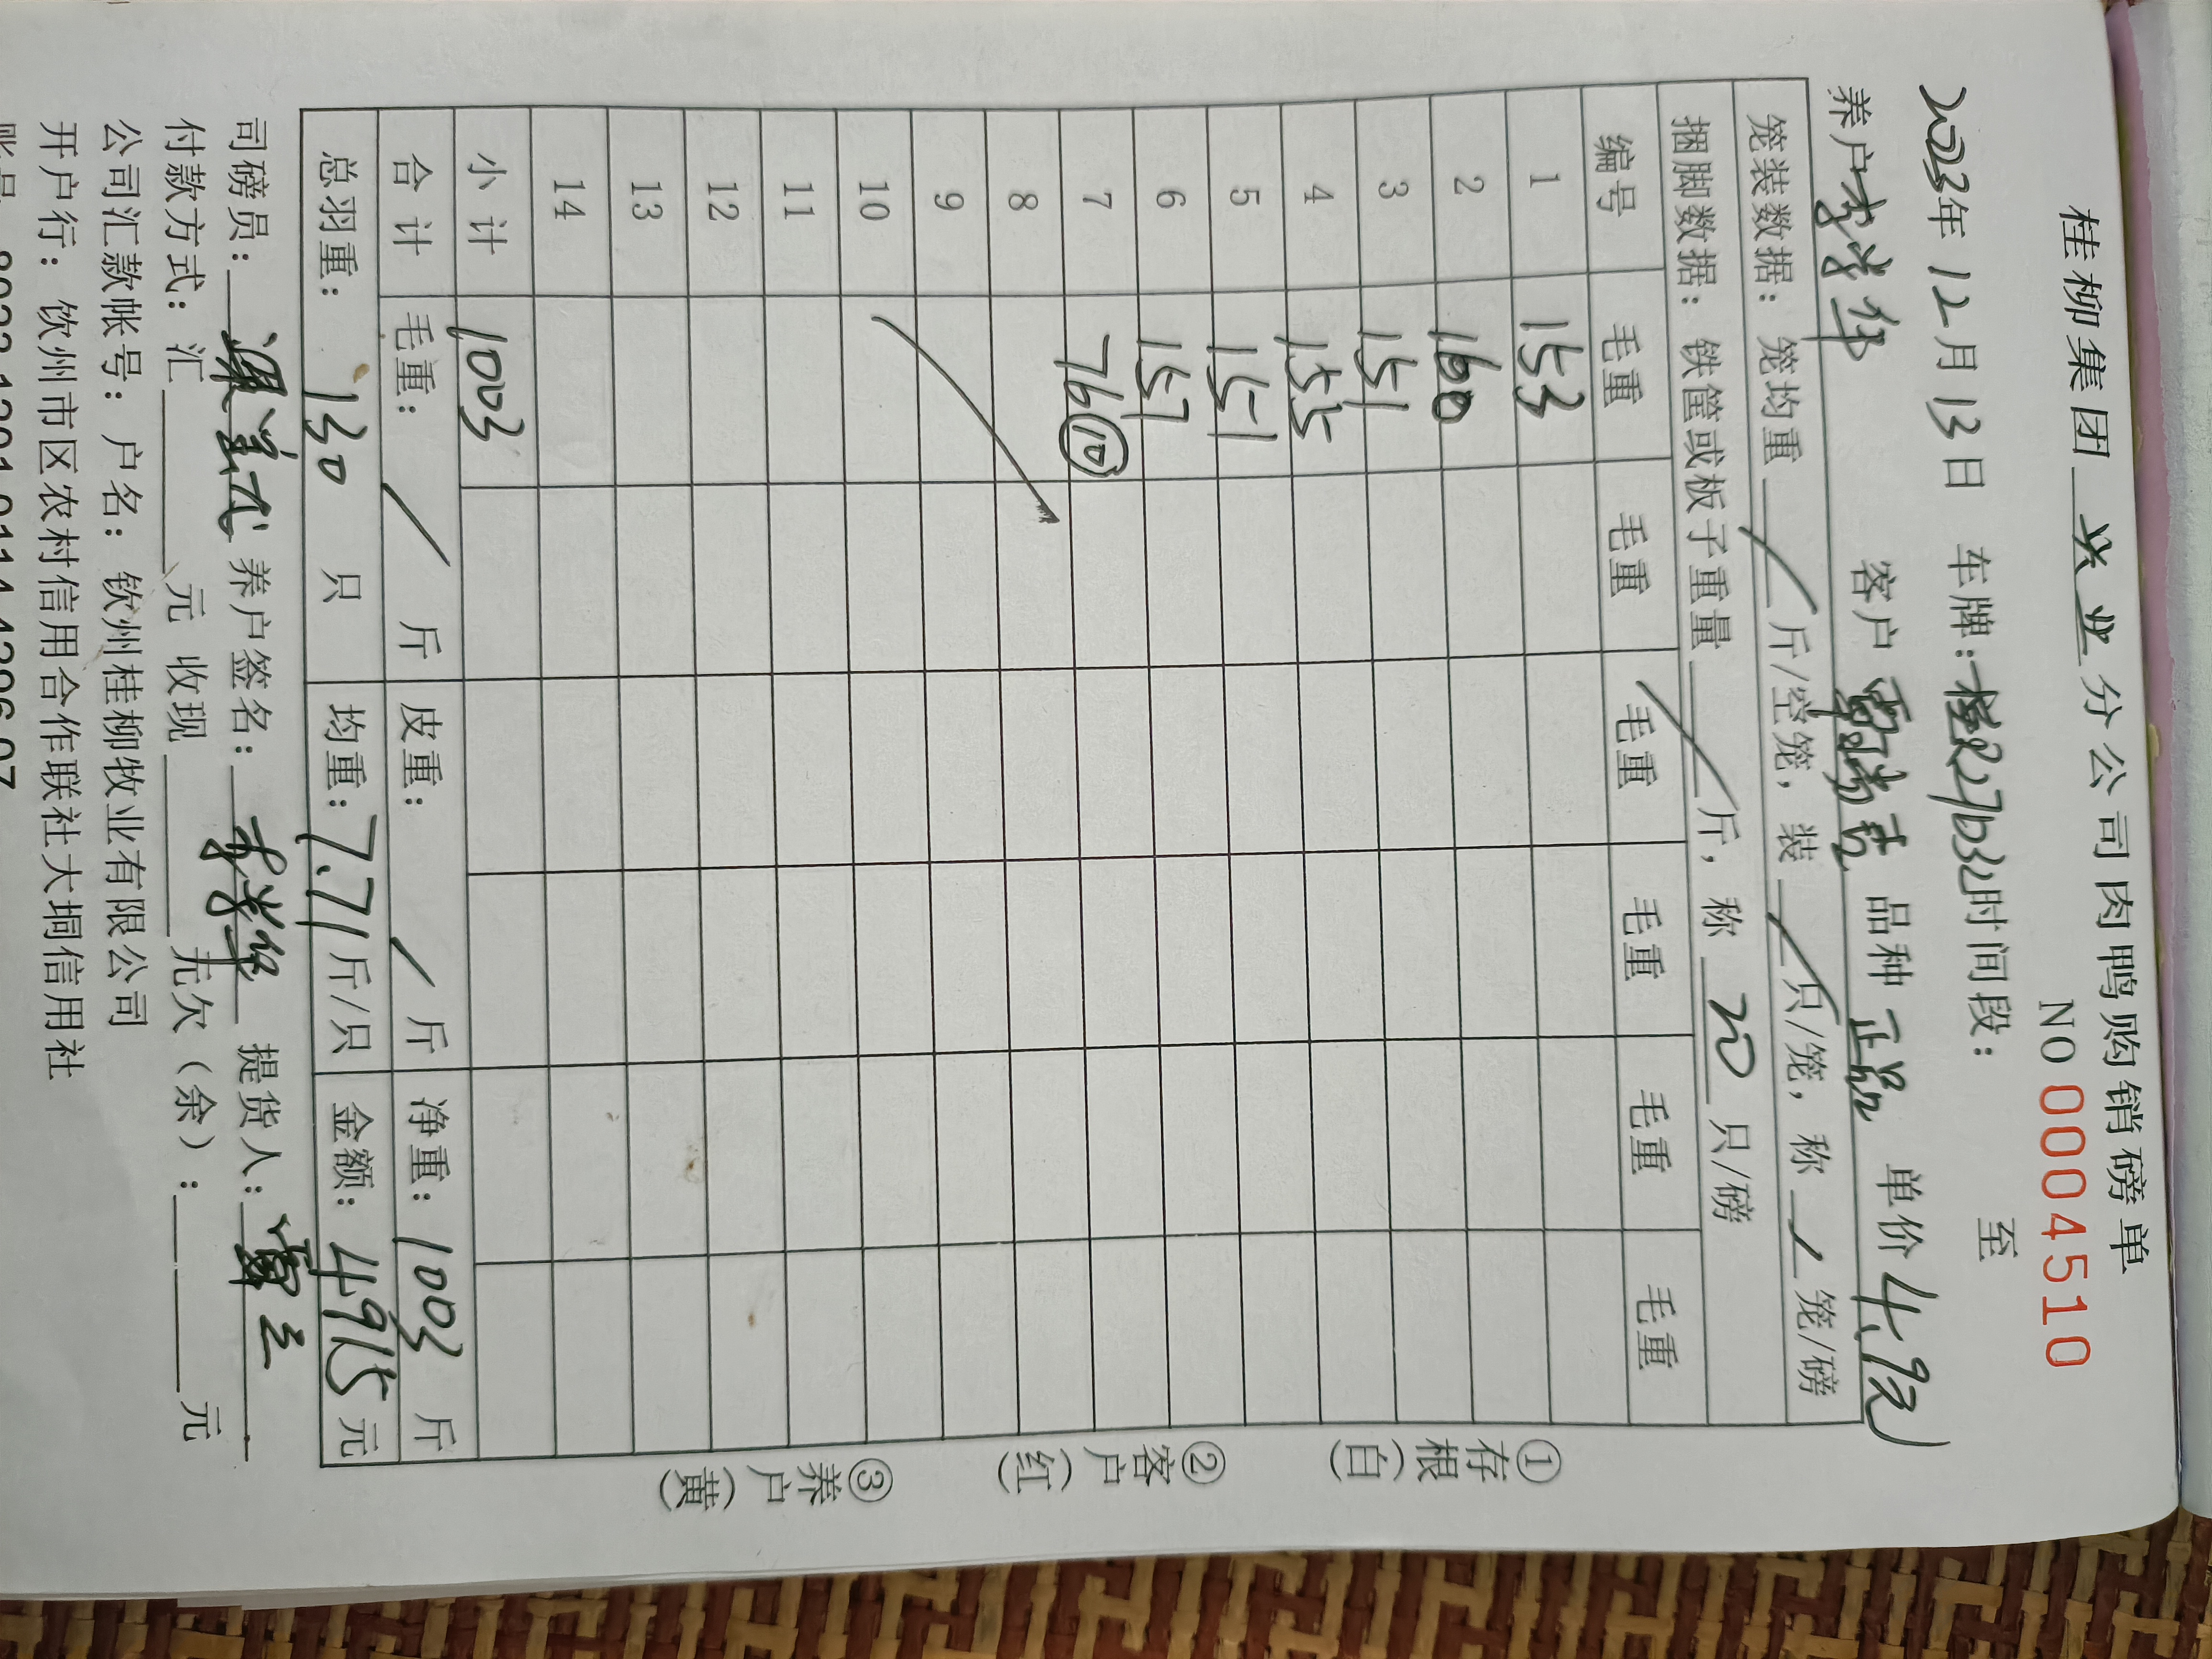 桂柳集团 兴业 分公司肉鸭购销磅单
NO 0004510
2023年12月13日 车牌:桂R27b32时间段: 至
养户 李学华 客户 品种 正品 单价 4.9元
笼装数据: 笼均重 / 斤/空笼, 装 / 只/笼, 称 / 笼/磅
捆脚数据: 铁筐或板子重量 / 斤, 称 20 只/磅
编号 毛重 毛重 毛重 毛重 毛重 毛重
1 153
2 160
3 151
4 155
5 151
6 157
7 76⑩
8
9
10
11
12
13
14
小计 1003
合计 毛重: / 斤 皮重: / 斤 净重: 1003 斤
总羽重: 130 只 均重: 7.71斤/只 金额: 4915元
司磅员: 养户签名: 李学华 提货人:
付款方式: 汇 元 收现 元欠(余): 元
公司汇款帐号: 户名: 钦州桂柳牧业有限公司
开户行: 钦州市区农村信用合作联社大垌信用社
①存根(白) ②客户(红) ③养户(黄)